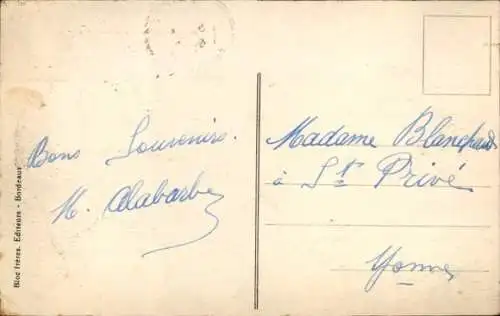 Bons Souvenirs.
M. Alabarbe
Madame Blanchard
à St Privé
Yonne
Bloc frères, Editeurs - Bordeaux